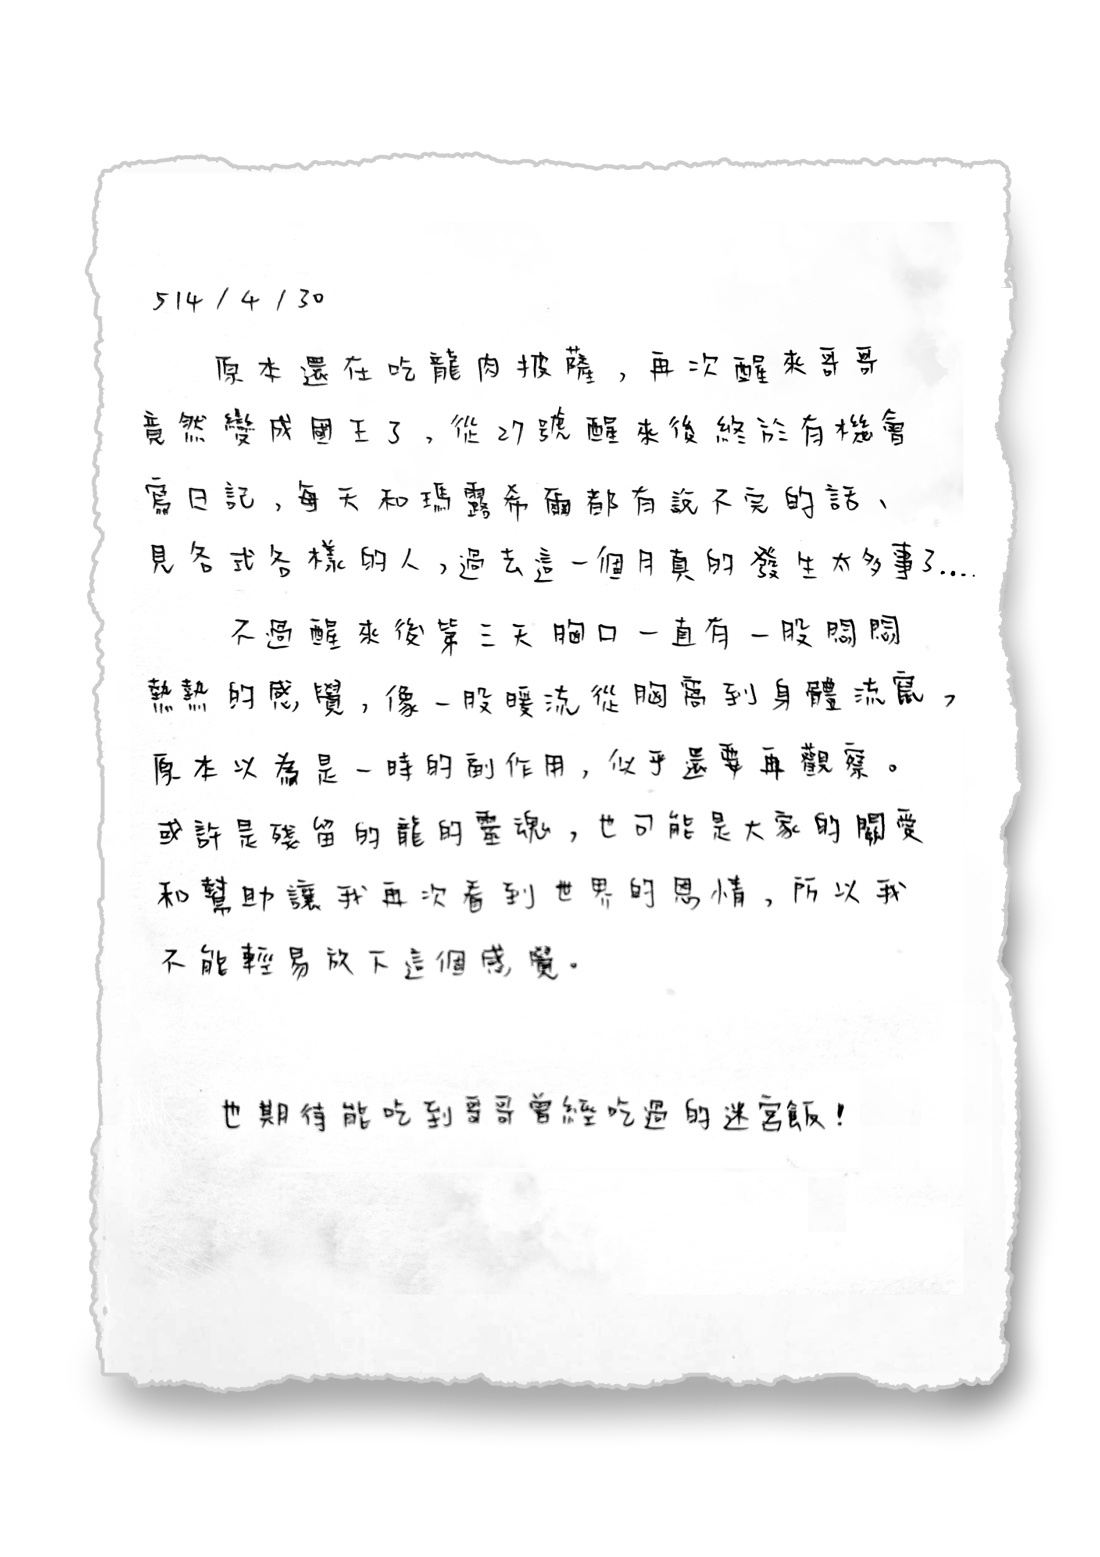 514/4/30
原本還在吃龍肉披薩，再次醒來哥哥
竟然變成國王了，從27號醒來後終於有機會
寫日記，每天和瑪露希爾都有說不完的話、
見各式各樣的人，過去這一個月真的發生太多事了....
不過醒來後第三天胸口一直有一股悶悶
熱熱的感覺，像一股暖流從胸窩到身體流竄，
原本以為是一時的副作用，似乎還要再觀察。
或許是殘留的龍的靈魂，也可能是大家的關愛
和幫助讓我再次看到世界的恩情，所以我
不能輕易放下這個感覺。
也期待能吃到哥哥曾經吃過的迷宮飯！